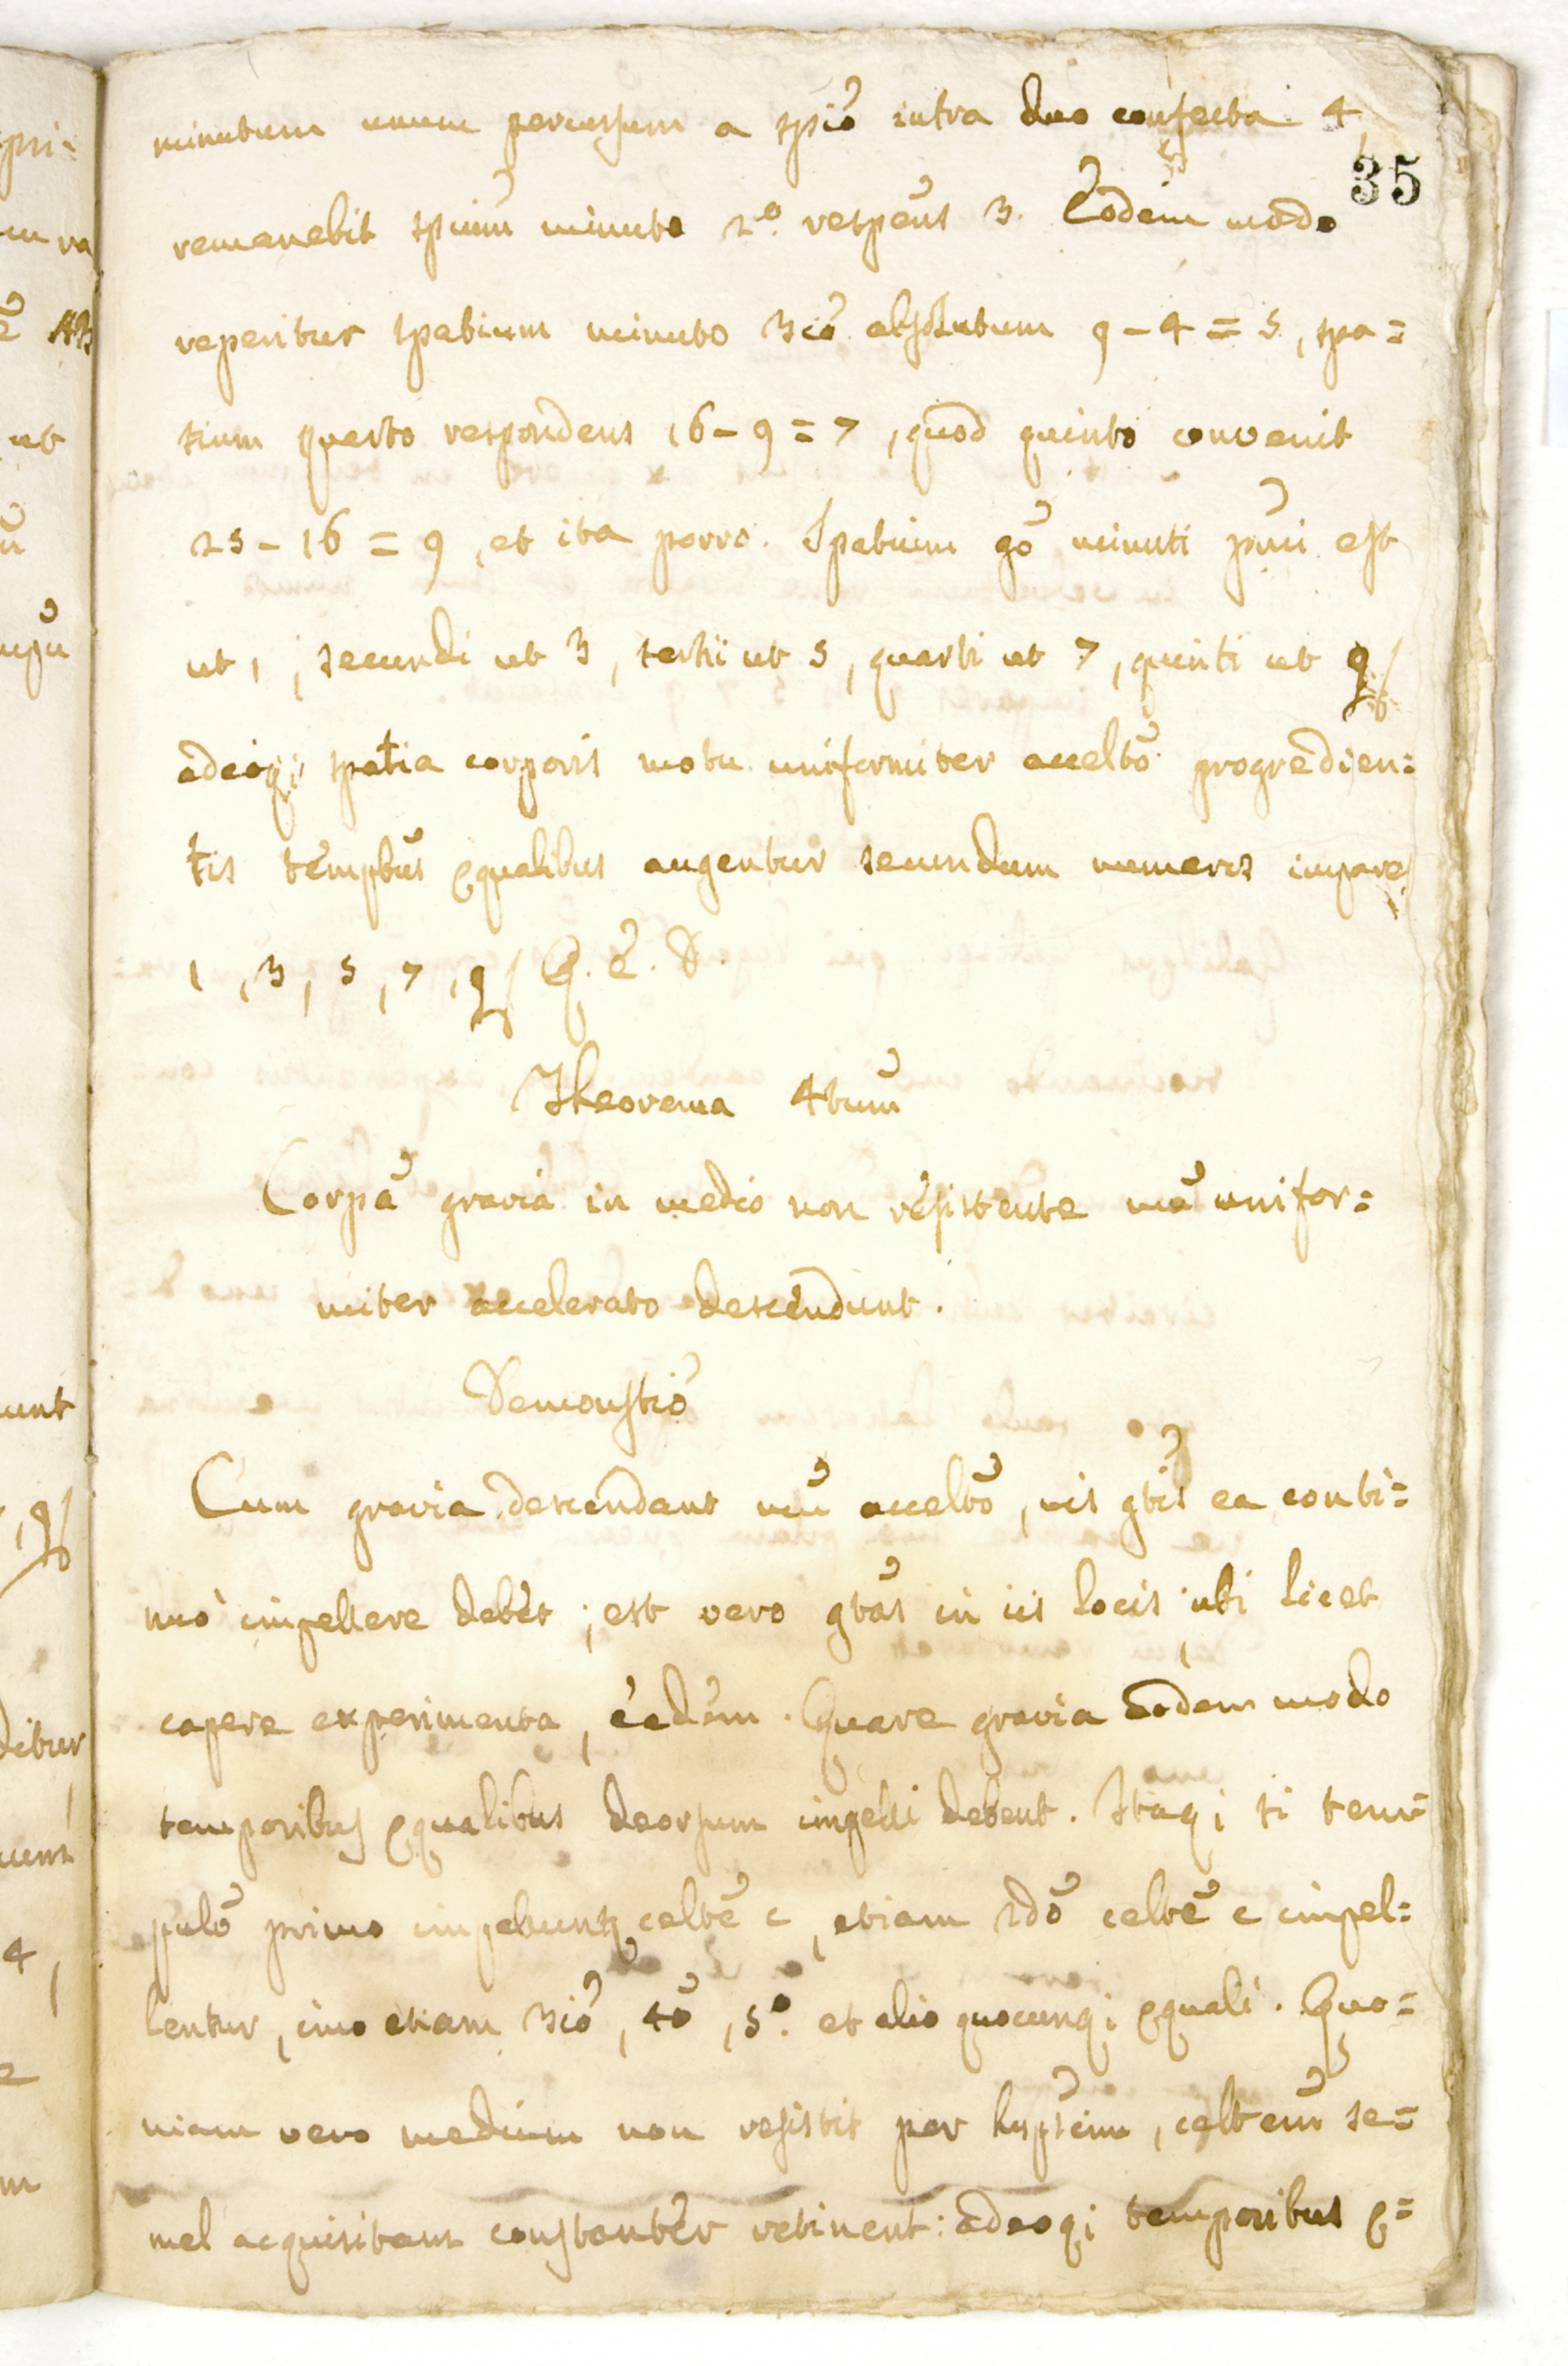 minutum unum percursum a spiõ intra duo confecta 4,
35
remanebit spiũm minuto 2º. respeñs 3. Eodem modo
reperitur spatium minuto 3iõ absolutum 9 - 4 = 5, spa=
tium quarto respondens 16 - 9 = 7, quod quinto convenit
25 - 16 = 9, et ita porro. Spatium gõ minuti p̃mi est
ut 1, secundi ut 3, tertii ut 5, quarti ut 7, quinti ut 9
adeoq; spatia corporis motu uniformiter acceltõ progredien=
tis tempbũs ęqualibus augentur secundum numeros impares
1, 3, 5, 7, 9 Q. E. D.
Theorema 4tum̃
Corpã gravia in medio non resistente mũ unifor=
miter accelerato descendunt.
Demonstiõ
Cum gravia descendant mũ acceltõ, vis gtis̃ ea conti=
nuò impellere debet; est vero gtãs in iis locis, ubi licet
capere experimenta, eadem. Quare gravia eodem modo
temporibus ęqualibus deorsum impelli debent. Itaq; si tem=
pulõ primo impelluntur celtẽ c, etiam 2dõ celtẽ c impel=
lentur, imo etiam 3iõ, 4õ, 5º. et alio quocunq; ęquali. Quo=
niam vero medium non resistit per hyps̃im, celtem̃ se=
mel acquisitam constanter retinent: adeoq; temporibus ę=